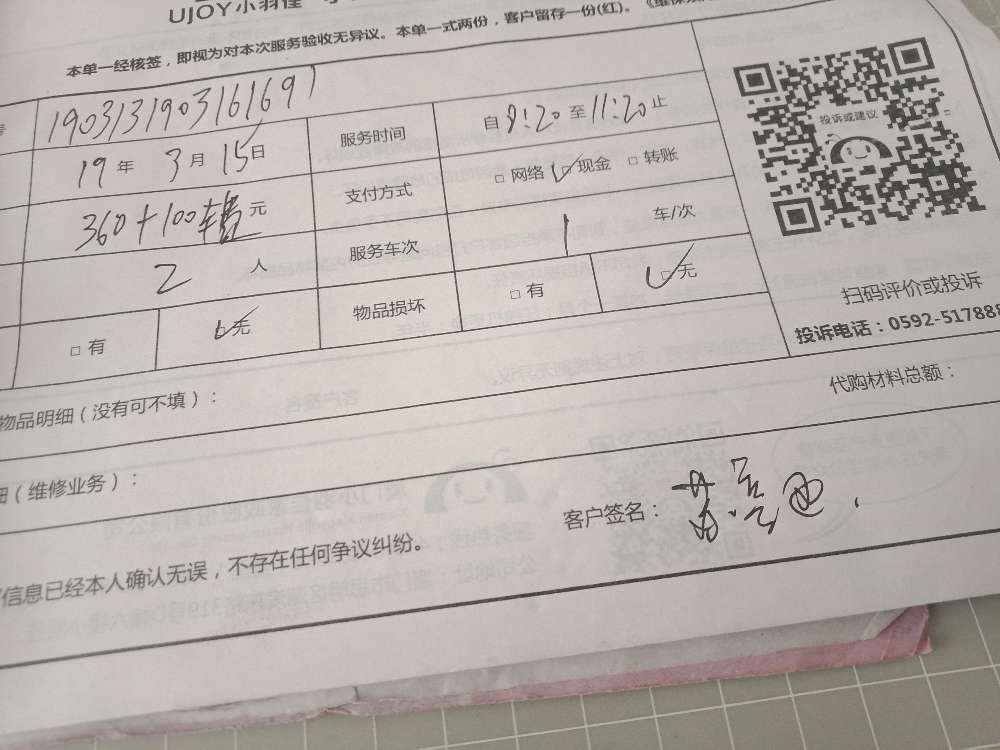 UJOY小羽佳
本单一经核签，即视为对本次服务验收无异议。本单一式两份，客户留存一份(红)。
号 1903131903161691
19 年 3 月 15 日 服务时间 自 8:20 至 11:20 止
360+100车费 元 支付方式 □ 网络 □ 现金 □ 转账
2 人 服务车次 1 车/次
□ 有 □ 无 物品损坏 □ 有 □ 无
投诉或建议
扫码评价或投诉
投诉电话：0592-517888
物品明细（没有可不填）： 代购材料总额：
细（维修业务）：
客户签名：
信息已经本人确认无误，不存在任何争议纠纷。